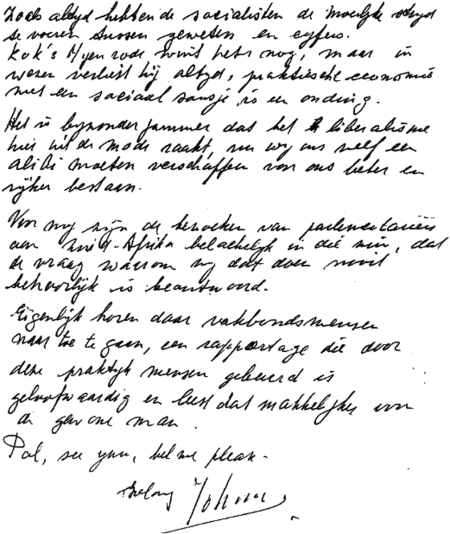 Zoals altyd hebben de socialisten de moeilyke stryd
te voeren tussen geweten en cyfers.
Kok's Nyenrode wint het nog, maar in
wezen verliest hij altyd, praktische economie
met een sociaal sausje is een onding.
Het is byzonder jammer dat het liberalisme
hier uit de mode raakt, nu wy ons zelf een
alibi moeten verschaffen voor ons beter en
ryker bestaan.
Voor my zijn de bezoeken van parlementariërs
aan Zuid-Afrika belachelyk in die zin, dat
de vraag waarom zy dat doen nooit
behoorlijk is beantwoord.
Eigenlijk horen daar vakbondsmensen
naar toe te gaan, een rapportage die door
deze praktyk mensen gebeurd is
geloofwaardig en leest dat makkelyker voor
de gewone man.
Pal, see you, bel me please.